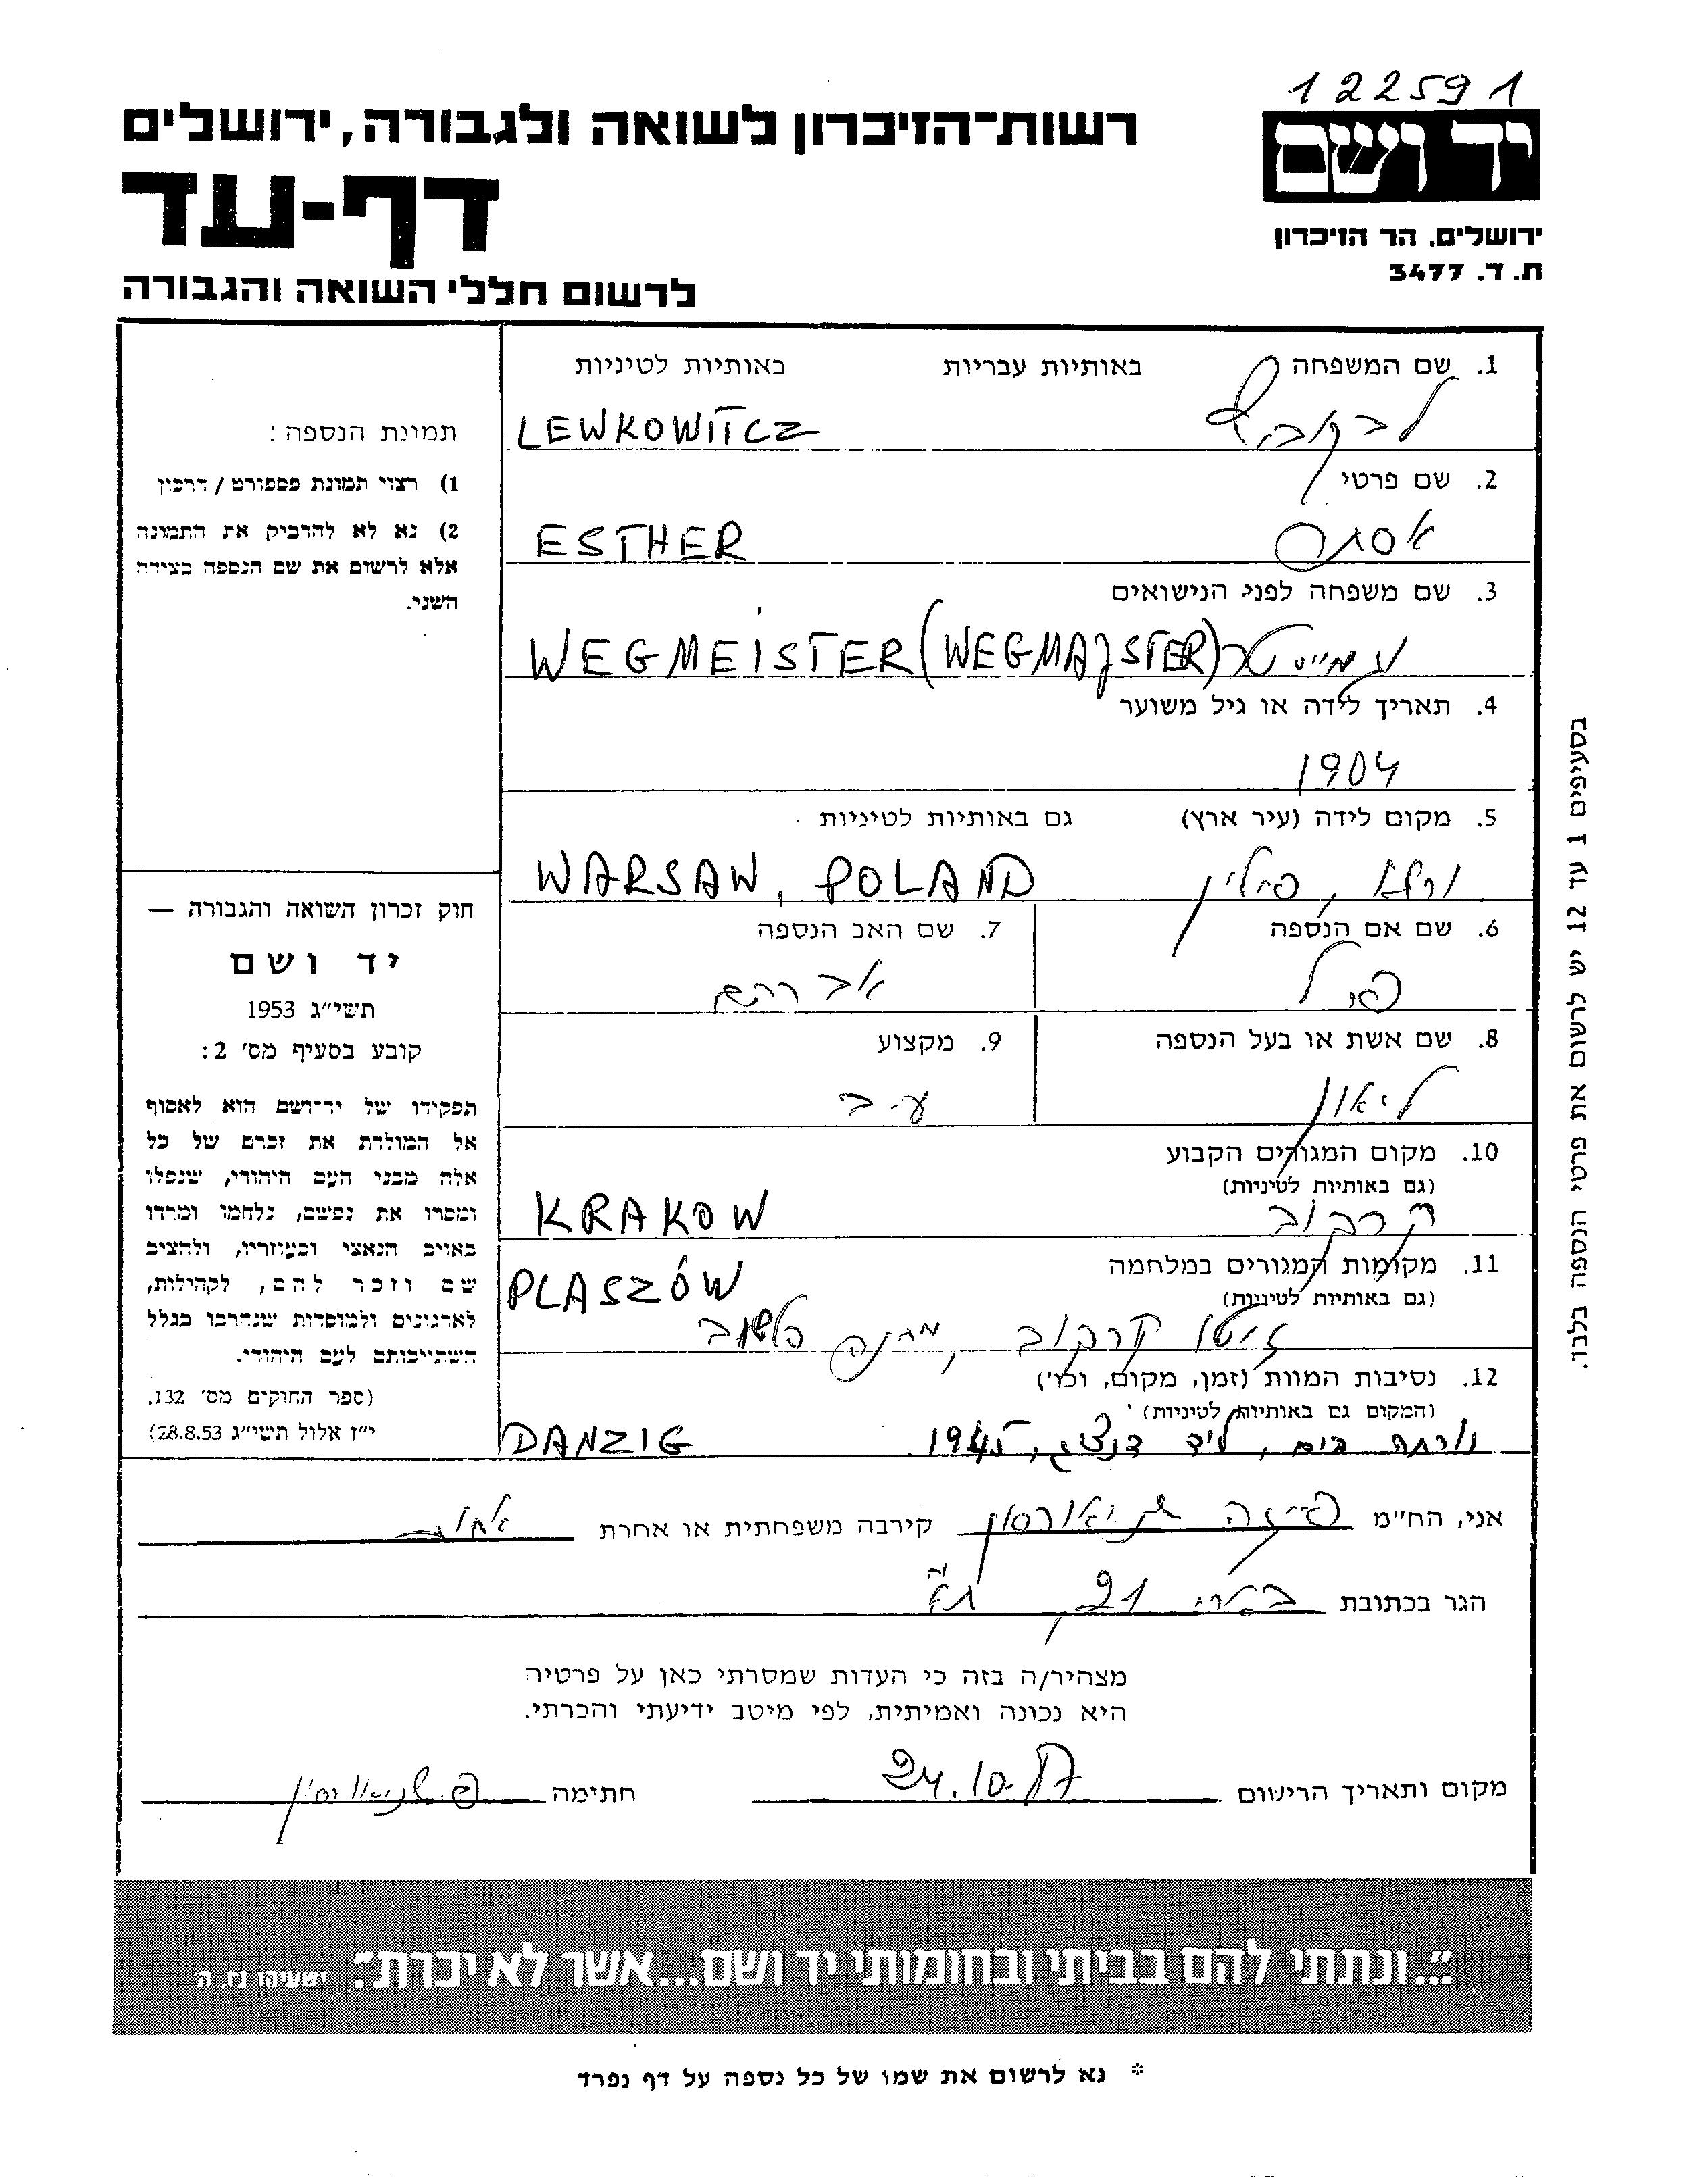 122591
יד ושם
רשות־הזיכרון לשואה ולגבורה, ירושלים
דף-עד
ירושלים. הר הזיכרון
ת. ד. 3477
לרשום חללי השואה והגבורה
1. שם המשפחה באותיות עבריות באותיות לטיניות
לבקוביץ LEWKOWITCZ
2. שם פרטי
אסתר ESTHER
3. שם משפחה לפני הנישואים
וגמייסטר WEGMEISTER (WEGMAJSTER)
4. תאריך לידה או גיל משוער
1904
5. מקום לידה (עיר ארץ) גם באותיות לטיניות
ורשא, פולין WARSAW, POLAND
6. שם אם הנספה 7. שם האב הנספה
אברהם
8. שם אשת או בעל הנספה 9. מקצוע
ליאון ע.ב
10. מקום המגורים הקבוע
(גם באותיות לטיניות)
קרקוב KRAKOW
11. מקומות המגורים במלחמה
(גם באותיות לטיניות)
PLASZÓW
גיטו קרקוב, מחנה פלשוב
12. נסיבות המוות (זמן, מקום, וכו')
(המקום גם באותיות לטיניות)
נורתה בים, ליד דנציג, 1945 DANZIG
תמונת הנספה:
1) רצוי תמונת פספורט / דרכון
2) נא לא להדביק את התמונה
אלא לרשום את שם הנספה בצידה
השני.
חוק זכרון השואה והגבורה —
יד ושם
תשי״ג 1953
קובע בסעיף מס׳ 2:
תפקידו של יד־ושם הוא לאסוף
אל המולדת את זכרם של כל
אלה מבני העם היהודי, שנפלו
ומסרו את נפשם, נלחמו ומרדו
באויב הנאצי ובעוזריו, ולהציב
שם וזכר להם, לקהילות,
לארגונים ולמוסדות שנחרבו בגלל
השתייכותם לעם היהודי.
(ספר החוקים מס׳ 132,
י״ז אלול תשי״ג 28.8.53)
בסעיפים 1 עד 12 יש לרשום את פרטי הנספה בלבד.
אני, הח״מ שניאורסון קירבה משפחתית או אחרת אחות
הגר בכתובת 21 ת״א
מצהיר/ה בזה כי העדות שמסרתי כאן על פרטיה
היא נכונה ואמיתית, לפי מיטב ידיעתי והכרתי.
מקום ותאריך הרישום 24.10.87 חתימה פ. שניאורסון
״...ונתתי להם בביתי ובחומותי יד ושם...אשר לא יכרת״. ישעיהו נו, ה
* נא לרשום את שמו של כל נספה על דף נפרד